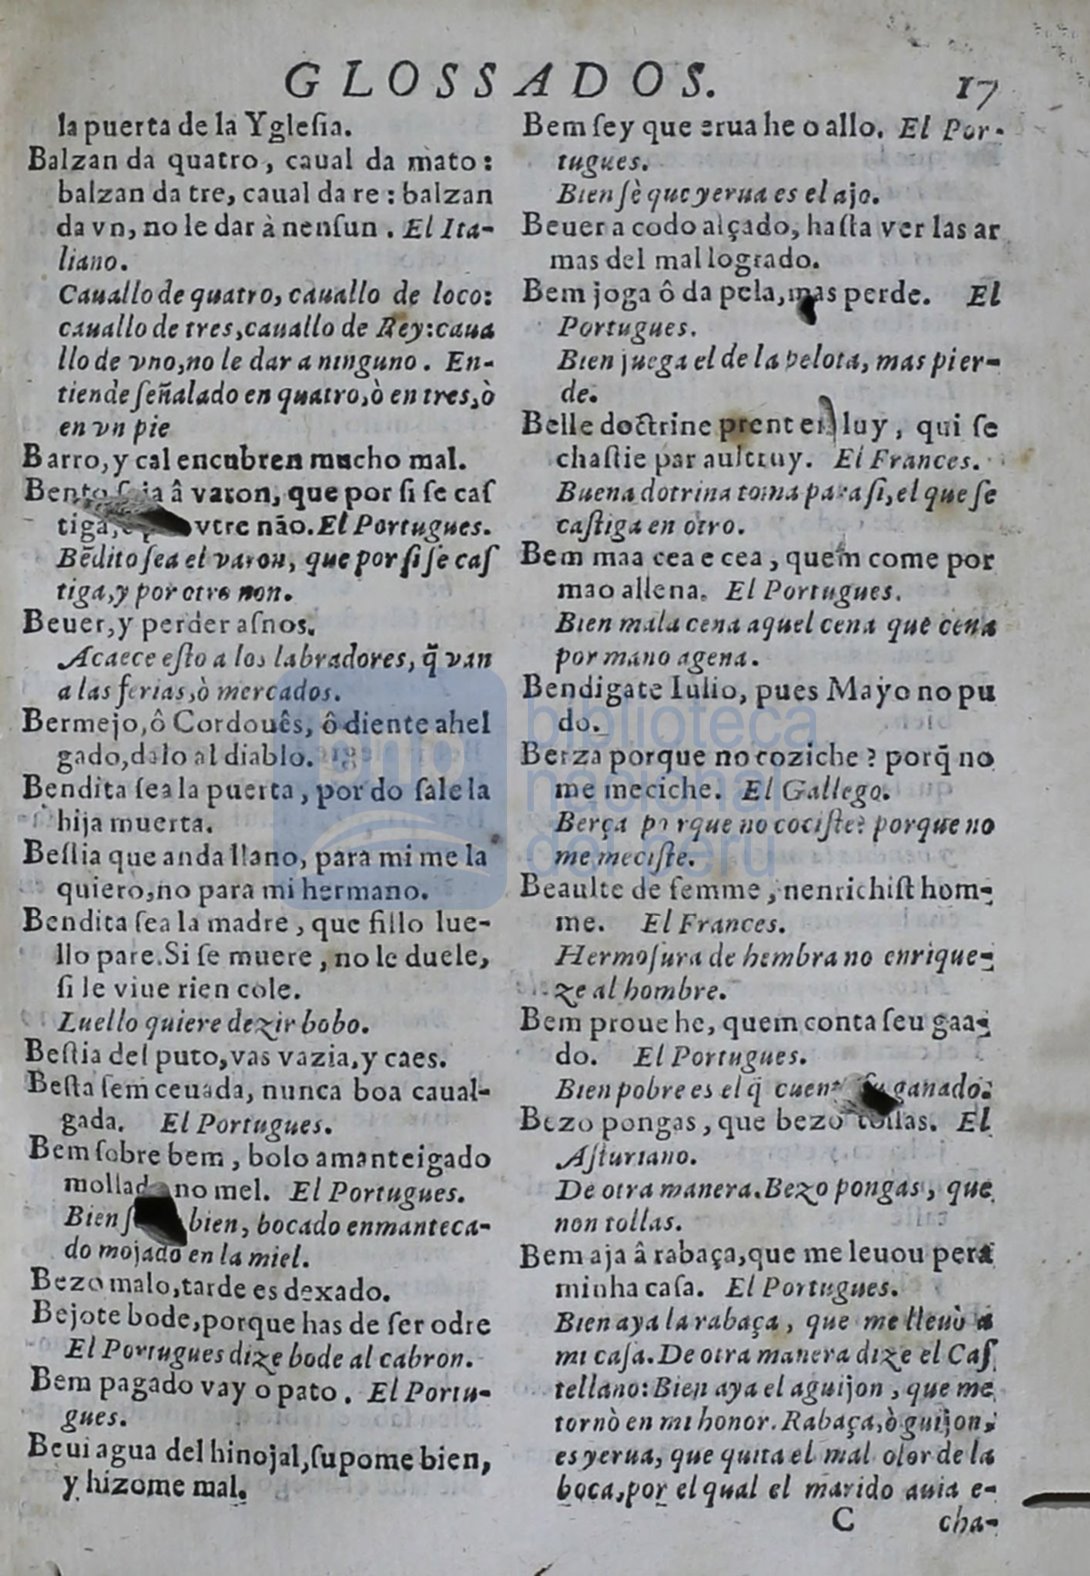 GLOSSADOS. 17
la puerta de la Yglesia.
Balzan da quatro, caual da mato:
balzan da tre, caual da re: balzan
da vn, no le dar à nensun. El Ita-
liano.
Cauallo de quatro, cauallo de loco:
cauallo de tres, cauallo de Rey: caua
llo de vno, no le dar a ninguno. En-
tiende señalado en quatro, ò en tres, ò
en vn pie
Barro, y cal encubren mucho mal.
Bento â varon, que por si se cas
tiga, vtre não. El Portugues.
Bẽdito sea el varon, que por si se cas
tiga, y por otro non.
Beuer, y perder asnos.
Acaece esto a los labradores, q̃ van
a las ferias, ò mercados.
Bermejo, ô Cordouês, ô diente ahel
gado, dalo al diablo.
Bendita sea la puerta, por do sale la
hija muerta.
Bestia que anda llano, para mi me la
quiero, no para mi hermano.
Bendita sea la madre, que fillo lue-
llo pare. Si se muere, no le duele,
si le viue rien cole.
Luello quiere dezir bobo.
Bestia del puto, vas vazia, y caes.
Besta sem ceuada, nunca boa caual-
gada. El Portugues.
Bem sobre bem, bolo amanteigado
no mel. El Portugues.
Bien bien, bocado enmanteca-
do mojado en la miel.
Bezo malo, tarde es dexado.
Bejote bode, porque has de ser odre
El Portugues dize bode al cabron.
Bem pagado vay o pato. El Portu-
gues.
Beui agua del hinojal, supome bien,
y hizome mal.
Bem sey que erua he o allo. El Por-
tugues.
Bien sè que yerua es el ajo.
Beuer a codo alçado, hasta ver las ar
mas del mal logrado.
Bem joga ô da pela, mas perde. El
Portugues.
Bien juega el de la pelota, mas pier-
de.
Belle doctrine prent luy, qui se
chastie par aultruy. El Frances.
Buena dotrina toma para si, el que se
castiga en otro.
Bem maa cea e cea, quem come por
mao allena. El Portugues.
Bien mala cena aquel cena que cena
por mano agena.
Bendigate Iulio, pues Mayo no pu
do.
Berza porque no coziche? porq̃ no
me meciche. El Gallego.
Berça porque no cociste? porque no
me meciste.
Beaulte de femme, nenrichist hom-
me. El Frances.
Hermosura de hembra no enrique-
ze al hombre.
Bem proue he, quem conta seu gaa-
do. El Portugues.
Bien pobre es el q̃ cuenta su ganado.
Bezo pongas, que bezo tollas. El
Asturiano.
De otra manera. Bezo pongas, que
non tollas.
Bem aja â rabaça, que me leuou pera
minha casa. El Portugues.
Bien aya la rabaça, que me lleuò a
mi casa. De otra manera dize el Cas
tellano: Bien aya el aguijon, que me
tornò en mi honor. Rabaça, ò guijon,
es yerua, que quita el mal olor de la
boca, por el qual el marido auia e-
C cha-
biblioteca
nacional
del perú